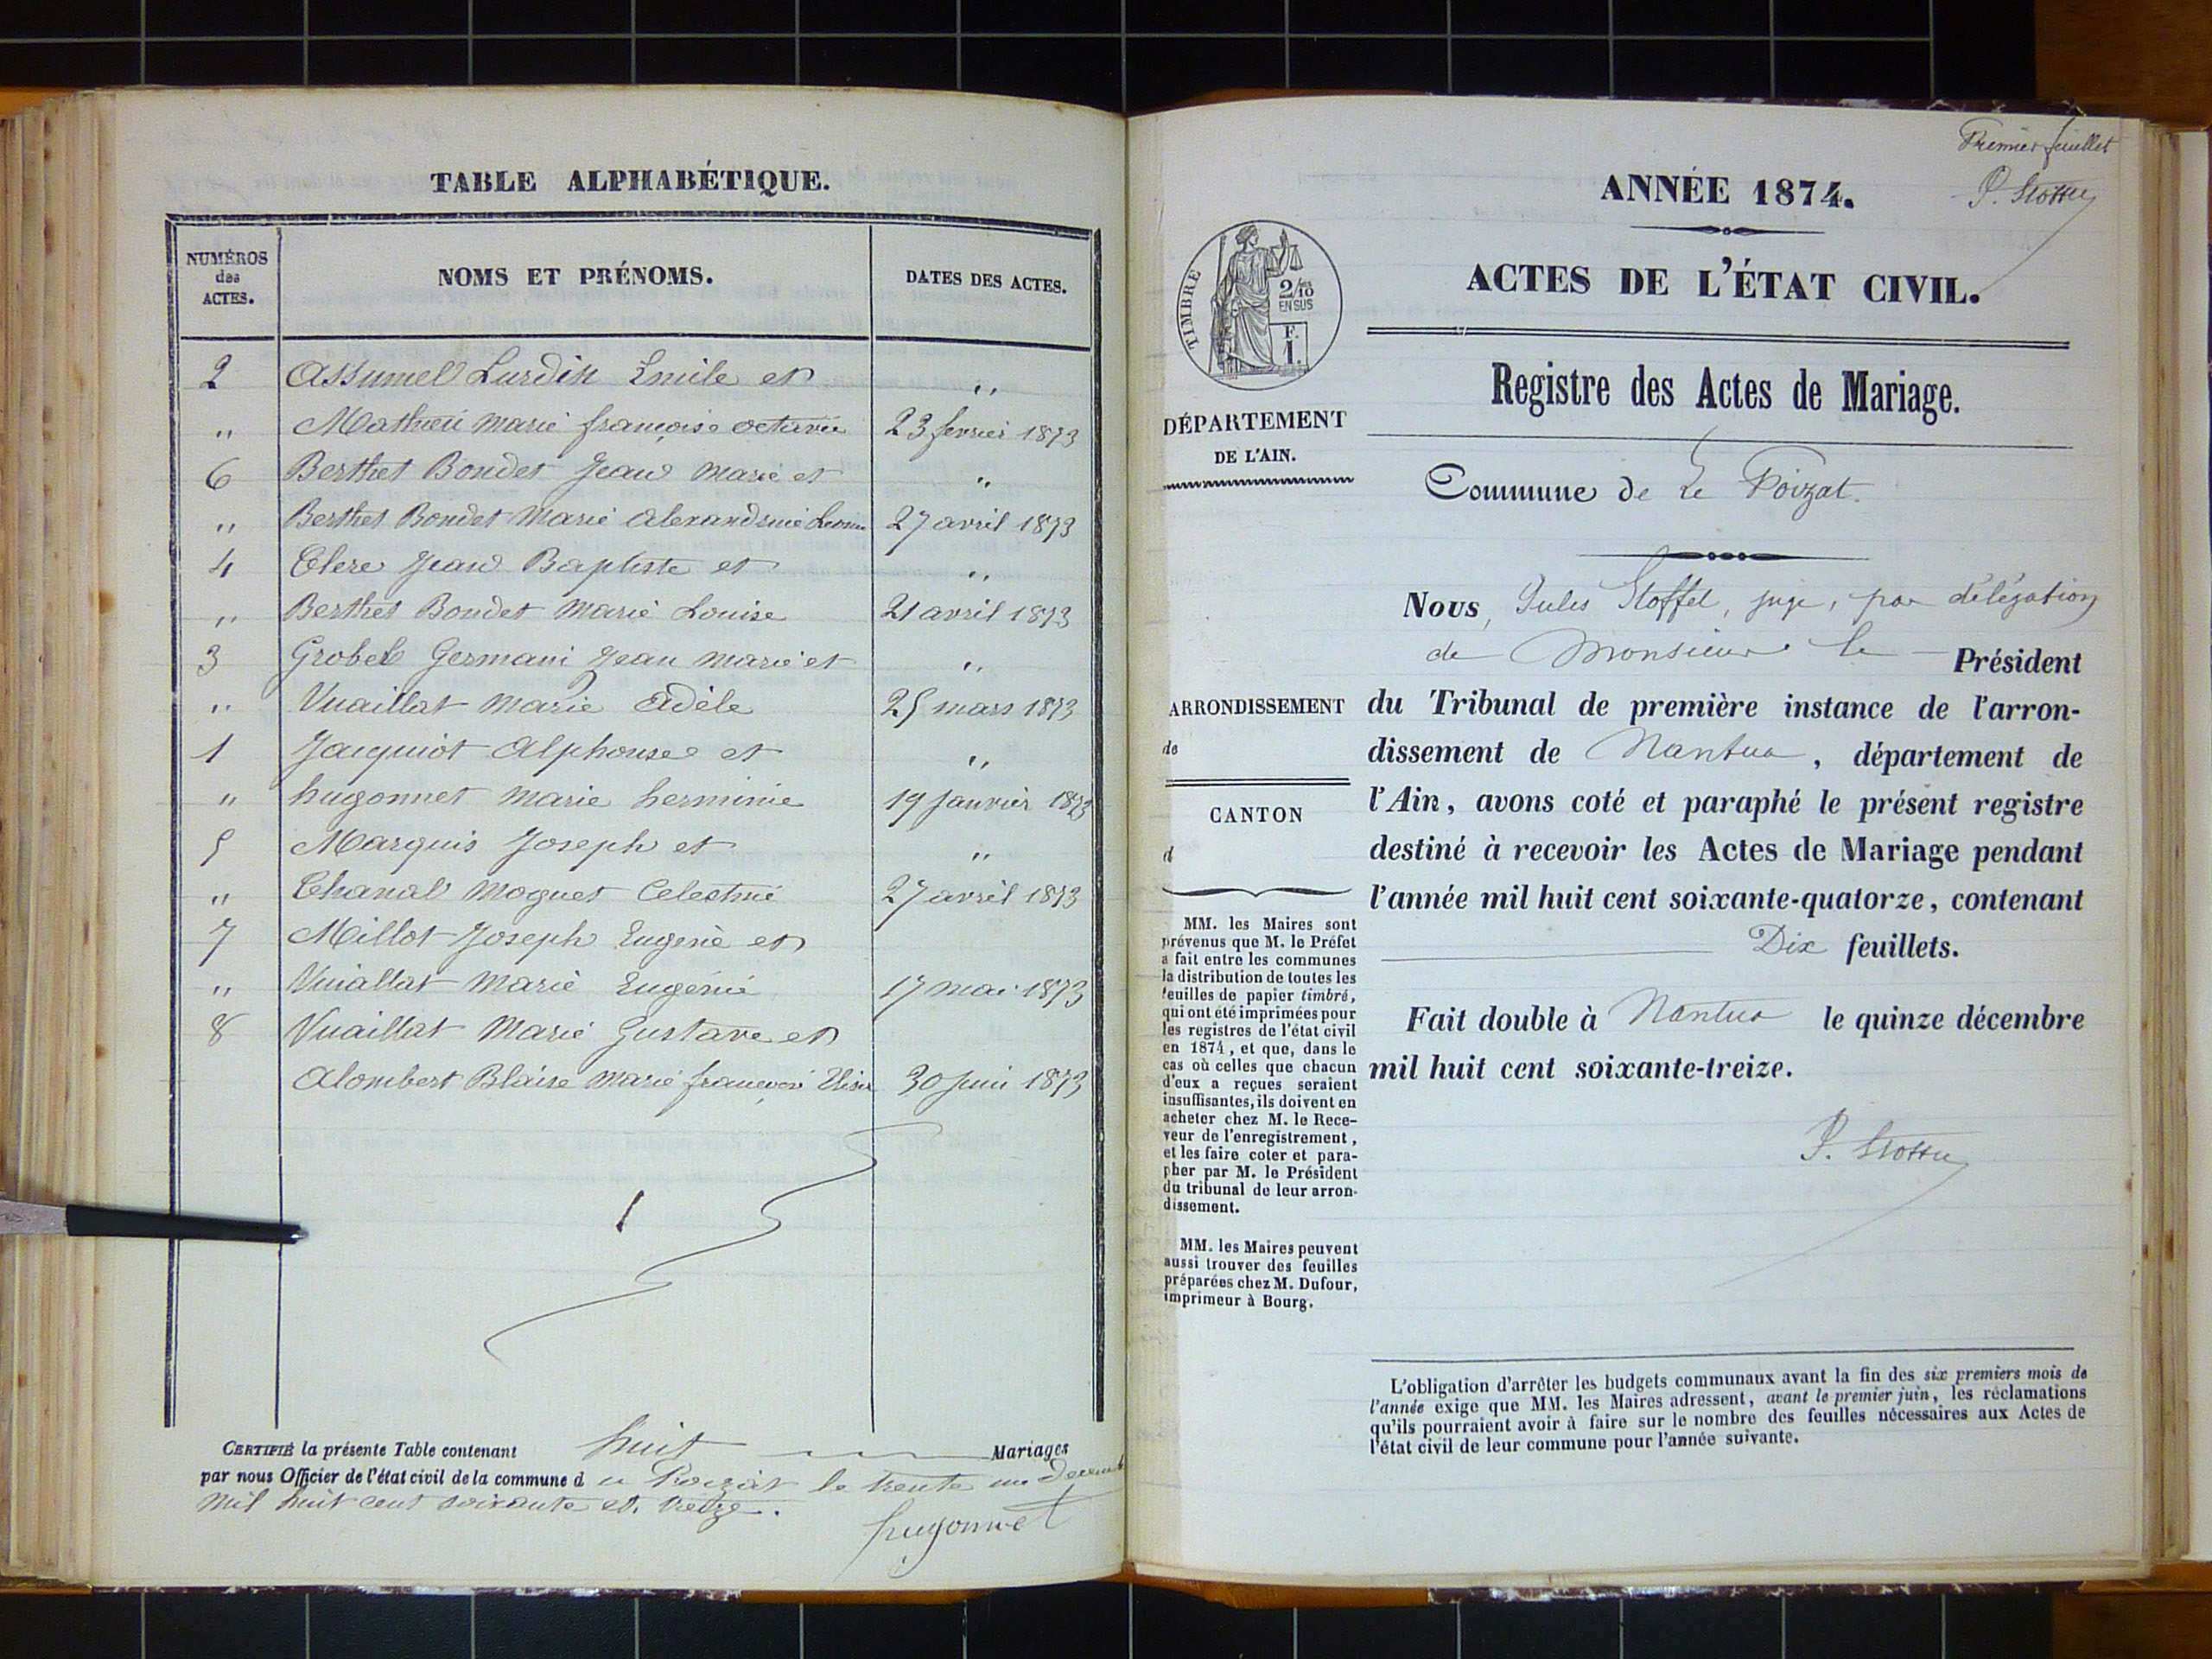 TABLE ALPHABÉTIQUE.
NUMÉROS
des
ACTES.
NOMS ET PRÉNOMS.
DATES DES ACTES.
2 Assumel Lurdin Emile et ,,
,, Mathieu Marie françoise octavie 23 fevrier 1873
6 Berthet Bondet Jean Marie et ,,
,, Berthet Bondet Marie Alexandrine 27 avril 1873
4 Clerc Jean Baptiste et ,,
,, Berthet Bondet Marie Louise 21 avril 1873
3 Grobel Germani Jean Marie et ,,
,, Vuaillat Marie Adèle 25 mars 1873
1 Jacquiot Alphonse et ,,
,, hugonnet Marie herminie 19 Janvier 1873
5 Marquis Joseph et ,,
,, Chanal Moguet Celestine 27 avril 1873
7 Millot Joseph Eugène et
,, Vuaillat Marie Eugénie 17 mai 1873
8 Vuaillat Marie Gustave et
Alombert Blaise Marie 30 Juin 1873
CERTIFIÉ la présente Table contenant huit Mariages
par nous Officier de l'état civil de la commune d u Poizat le trente un Decembre
mil huit cent soixante et treize.
hugonnet
Premier feuillet
ANNÉE 1874.
ACTES DE L'ÉTAT CIVIL.
TIMBRE
2/10
EN SUS
F.
1.
Registre des Actes de Mariage.
DÉPARTEMENT
DE L'AIN.
Commune de Le Poizat.
Nous, Jules Stoffel, juge, par délégation
de Monsieur le Président
ARRONDISSEMENT
de
CANTON
d
du Tribunal de première instance de l'arron-
dissement de Nantua, département de
l'Ain, avons coté et paraphé le présent registre
destiné à recevoir les Actes de Mariage pendant
l'année mil huit cent soixante-quatorze, contenant
Dix feuillets.
Fait double à Nantua le quinze décembre
mil huit cent soixante-treize.
MM. les Maires sont
prévenus que M. le Préfet
a fait entre les communes
la distribution de toutes les
feuilles de papier timbré,
qui ont été imprimées pour
les registres de l'état civil
en 1874, et que, dans le
cas où celles que chacun
d'eux a reçues seraient
insuffisantes, ils doivent en
acheter chez M. le Rece-
veur de l'enregistrement,
et les faire coter et para-
pher par M. le Président
du tribunal de leur arron-
dissement.
MM. les Maires peuvent
aussi trouver des feuilles
préparées chez M. Dufour,
imprimeur à Bourg.
L'obligation d'arrêter les budgets communaux avant la fin des six premiers mois de
l'année exige que MM. les Maires adressent, avant le premier juin, les réclamations
qu'ils pourraient avoir à faire sur le nombre des feuilles nécessaires aux Actes de
l'état civil de leur commune pour l'année suivante.